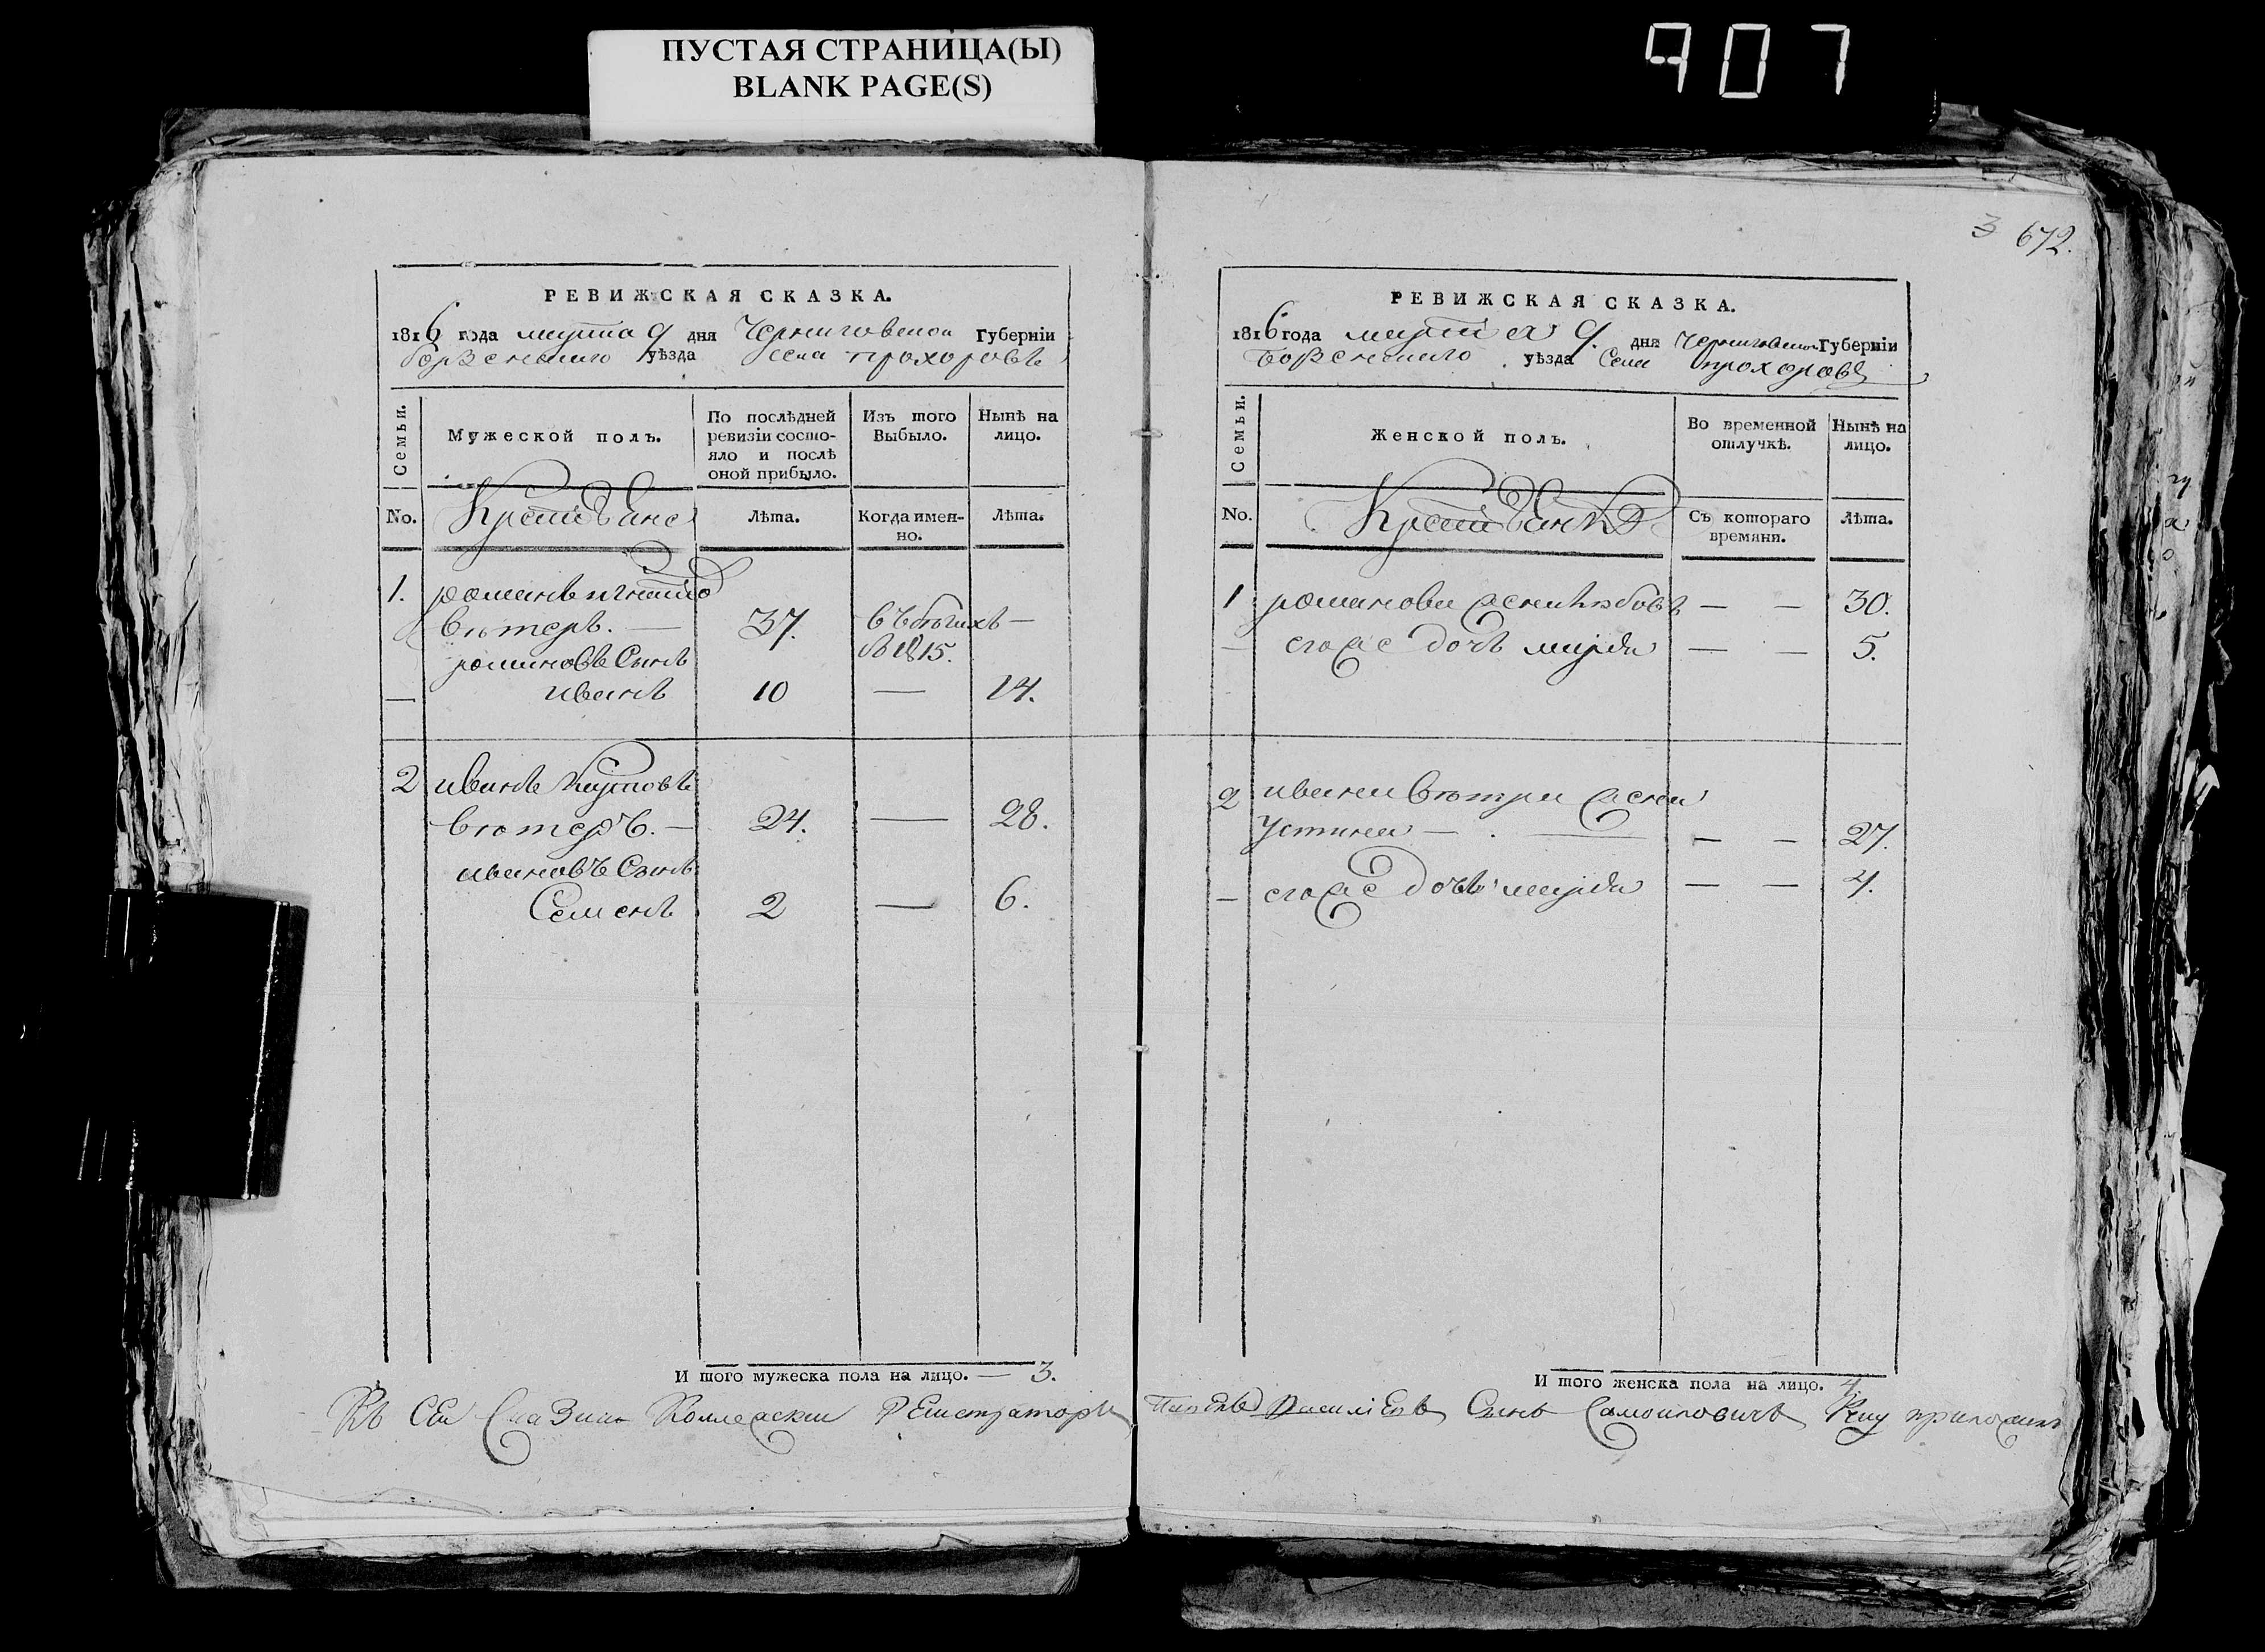 ПУСТАЯ СТРАНИЦА(Ы)
BLANK PAGE(S)
907
РЕВИЖСКАЯ СКАЗКА.
1816 года марта 9 дня Черниговской Губерніи
борзенского уѣзда села прохоровъ
Семьи.
Мужеской полъ.
По послѣдней ревизіи состо-
яло и послѣ оной прибыло.
Изъ того Выбыло.
Нынѣ на лицо.
No.
Крестьяне
Лѣта.
Когда имен-
но.
Лѣта.
1. романъ игнатов
вютеръ. — 37. въ бѣгахъ —
в 1815.
романовъ Сынъ
— иванъ 10 — 14.
2 иванъ
вютеръ. — 24. — 28.
ивановъ Сынъ
Семенъ 2 — 6.
И того мужеска пола на лицо. — 3.
3 672.
РЕВИЖСКАЯ СКАЗКА.
1816 года марта 9. дня Черниговской Губерніи
Борзенского уѣзда Села прохоровъ
Семьи.
Женской полъ.
Во временной отлучкѣ.
Нынѣ на лицо.
No.
Крестьянъ
Съ котораго времяни.
Лѣта.
1 романова жена любовъ — — 30.
— егожъ дочь марья — — 5.
2 ивана вютра жена
устинья — — — 27.
— егожъ дочь марья — — 4.
И того женска пола на лицо. 4.
Къ Сеи Сказки Колежски Регистраторъ Василіевъ Сынъ Самоиловичъ Руку приложилъ